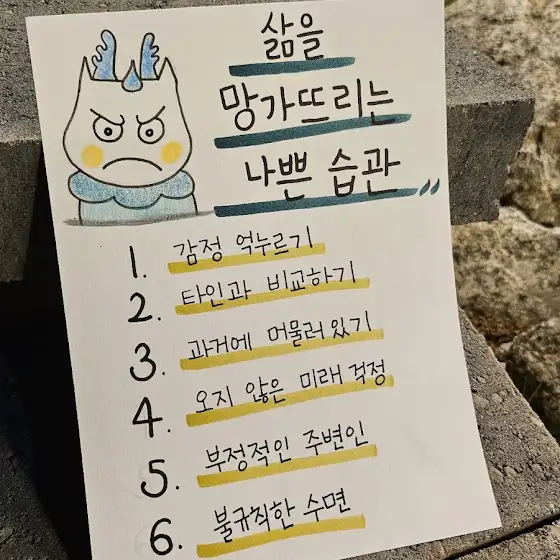 삶을
망가뜨리는
나쁜 습관
1. 감정 억누르기
2. 타인과 비교하기
3. 과거에 머물러 있기
4. 오지 않은 미래 걱정
5. 부정적인 주변인
6. 불규칙한 수면